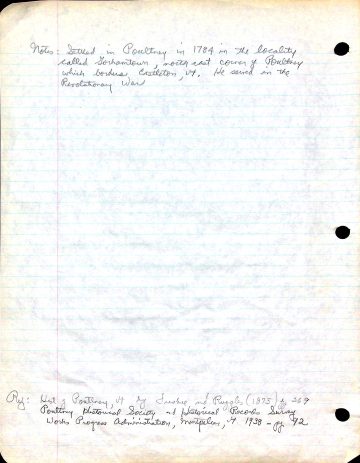 Notes: Settled in Poultney in 1784 in the locality
called Gorhamtown, north east corner of Poultney
which borders Castleton, Vt. He served in the
Revolutionary War
Ref: Hist of Poultney, Vt by Joslin and Ruggles (1875) p 269
Poultney Historical Society and Historical Records Survey
Works Progress Administration, Montpelier, Vt 1938 - pg 92